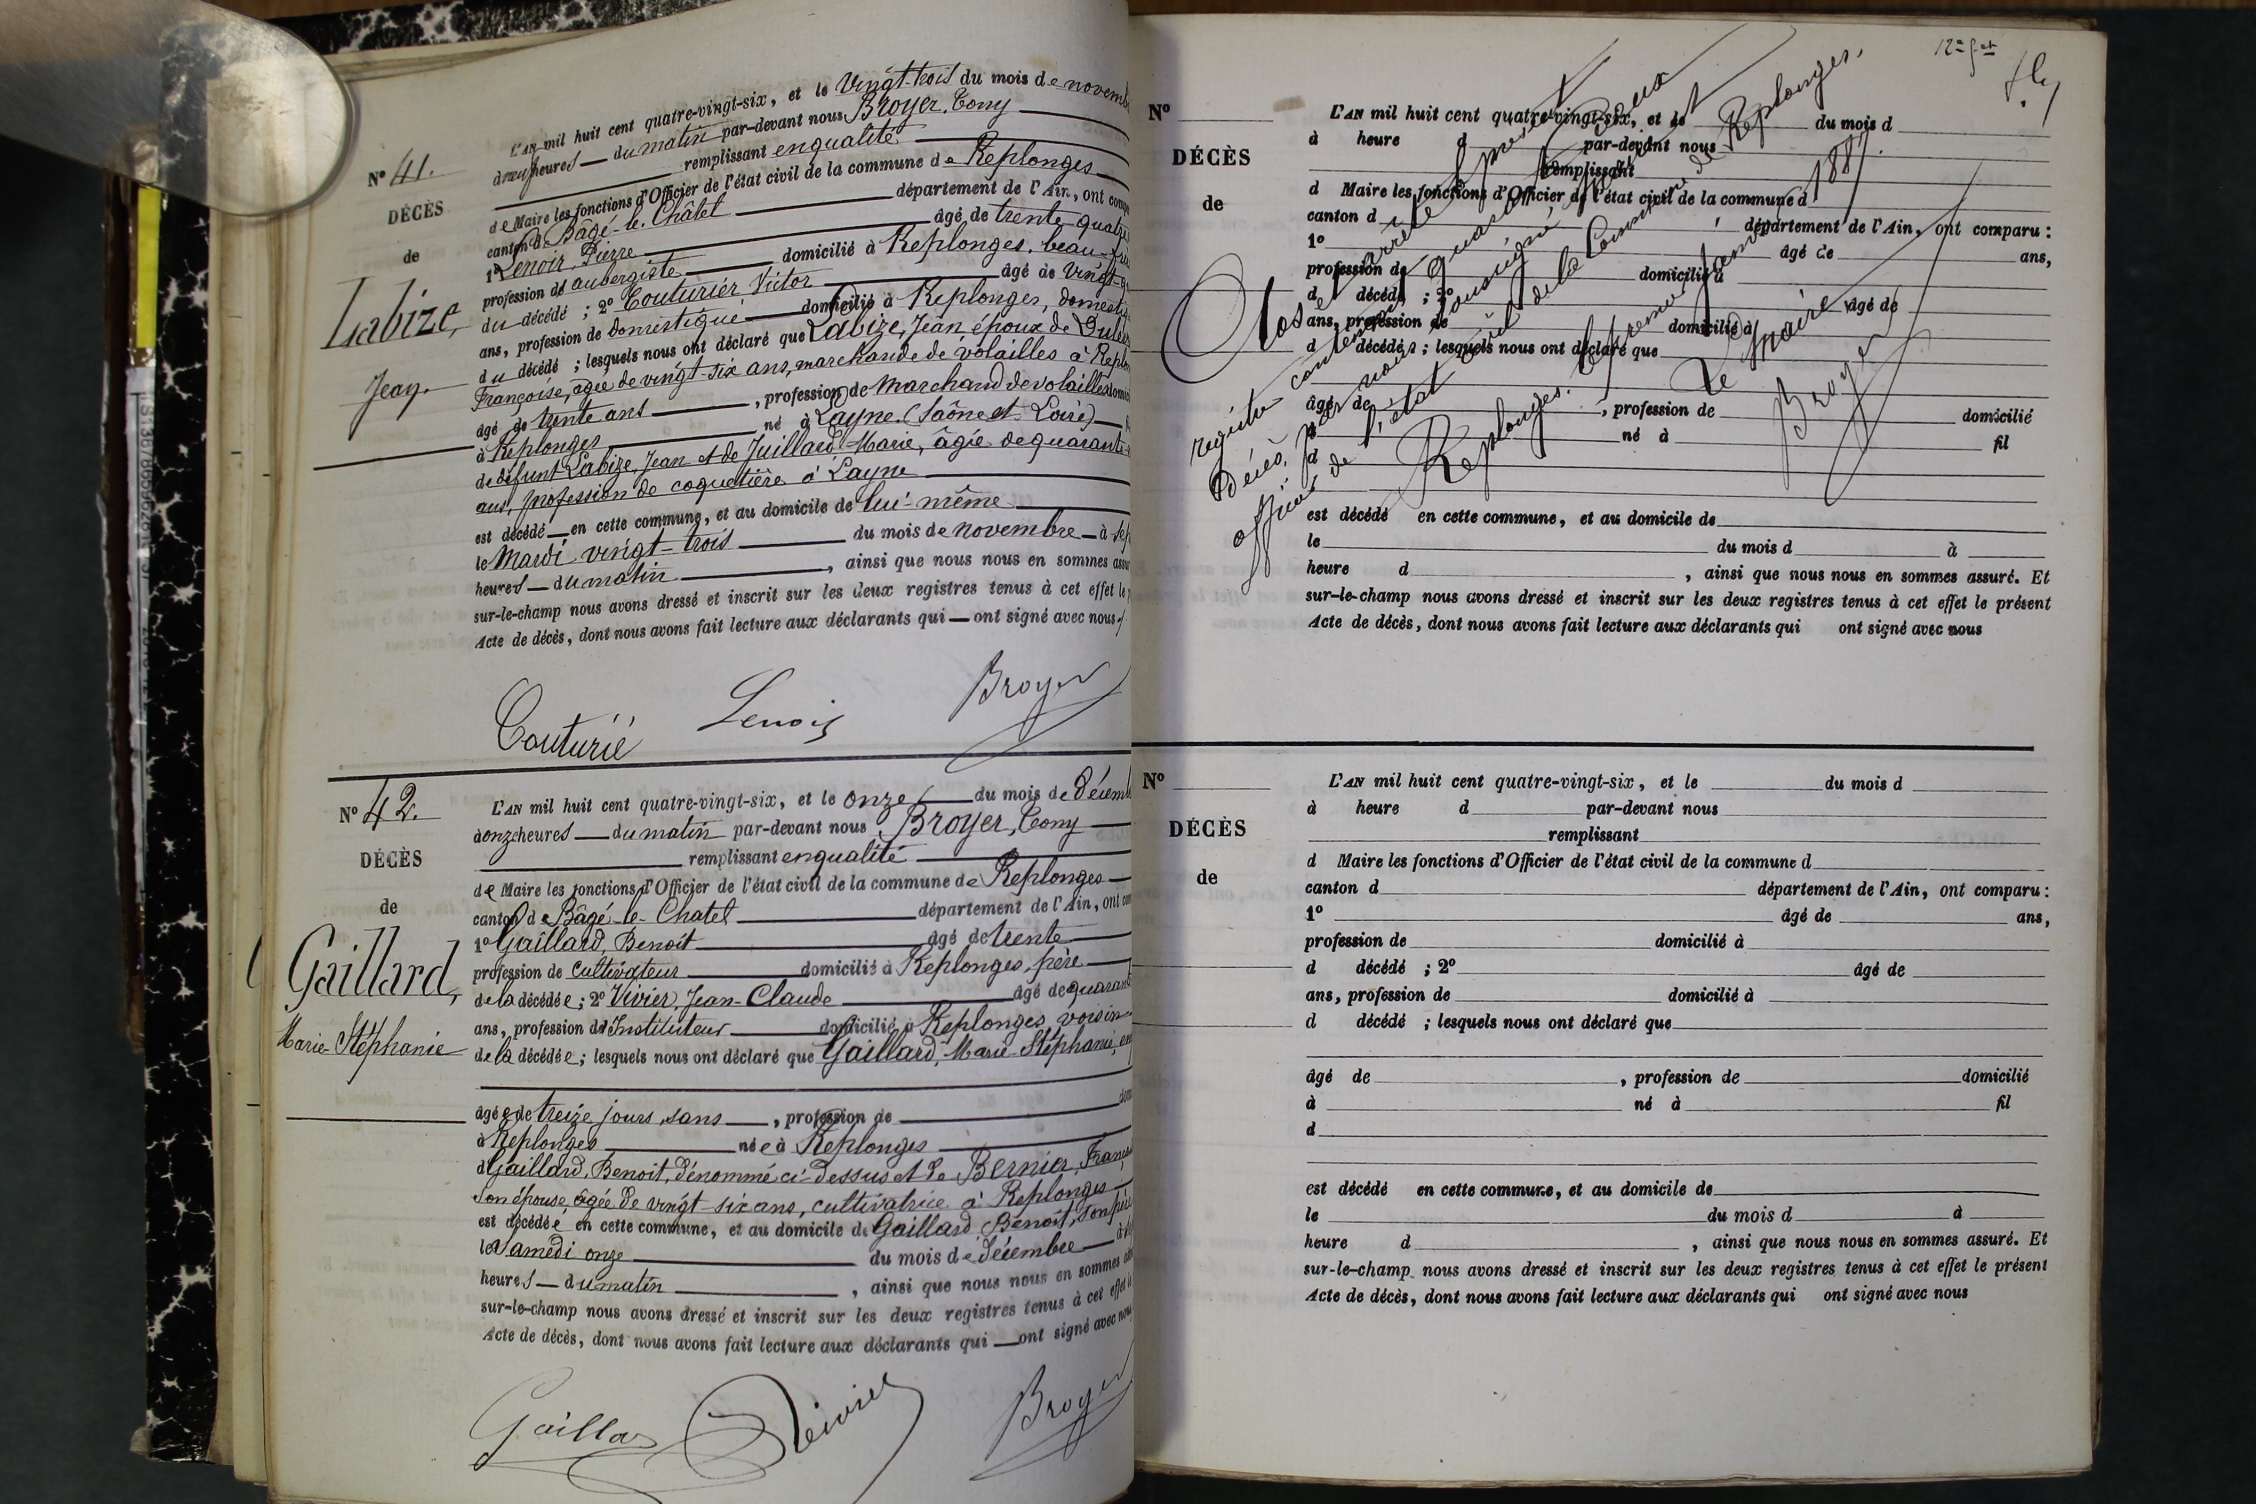 L'AN mil huit cent quatre-vingt-six, et le Vingt-trois du mois de novemb
à neuf heures du matin par-devant nous Broyer, Tony
remplissant en qualité
de Maire les fonctions d'Officier de l'état civil de la commune de Replonges
canton de Bâgé-le-Châtel département de l'Ain, ont comp
1º Lenoir, Pierre âgé de trente quatre
profession d'aubergiste domicilié à Replonges, beau-
du décédé ; 2º Couturier Victor âgé de vingt-
ans, profession de Domestique domicilié à Replonges, domesti
du décédé ; lesquels nous ont déclaré que Labize, Jean époux de
Françoise, agée de vingt-six ans, marchande de volailles à Repl
âgé de trente ans, profession de Marchand de volailles domici
à Replonges né à Layne (Saône et Loire)
de défunt Labize, Jean et de Juillard Marie, âgée de quarante-
ans, profession de coquetière à Layne
est décédé en cette commune, et au domicile de lui-même
le Mardi vingt-trois du mois de novembre à sep
heures du matin, ainsi que nous nous en sommes assu
sur-le-champ nous avons dressé et inscrit sur les deux registres tenus à cet effet le p
Acte de décès, dont nous avons fait lecture aux déclarants qui ont signé avec nous
Nº 41.
DÉCÈS
de
Labize,
Jean
Couturié Lenoir Broyer
L'AN mil huit cent quatre-vingt-six, et le onze du mois de Décemb
à onze heures du matin par-devant nous Broyer, Tony
remplissant en qualité
de Maire les fonctions d'Officier de l'état civil de la commune de Replonges
canton de Bâgé-le-Chatel département de l'Ain, ont com
1º Gaillard, Benoit âgé de trente
profession de Cultivateur domicilié à Replonges, père
de la décédée ; 2º Vivier, Jean-Claude âgé de quarant
ans, profession d'Instituteur domicilié à Replonges, voisin
de la décédée ; lesquels nous ont déclaré que Gaillard, Marie-Stéphanie,
âgée de treize jours, sans, profession de dom
à Replonges née à Replonges
d Gaillard, Benoit, dénommé ci-dessus et de Bernier, Franç
son épouse, âgée de vingt-six ans, cultivatrice à Replonges
est décédée en cette commune, et au domicile de Gaillard Benoit, son père
le Samedi onze du mois de Décembre à
heures du matin, ainsi que nous nous en sommes
sur-le-champ nous avons dressé et inscrit sur les deux registres tenus à cet effet le
Acte de décès, dont nous avons fait lecture aux déclarants qui ont signé avec nous
Nº 42.
DÉCÈS
de
Gaillard,
Marie-Stéphanie
Gaillard Vivier Broyer
Nº
DÉCÈS
de
L'AN mil huit cent quatre-vingt-six, et le du mois d
à heure d par-devant nous
remplissant
d Maire les fonctions d'Officier de l'état civil de la commune d
canton d département de l'Ain, ont comparu :
1º âgé de ans,
profession de domicilié à
d décédé ; 2º âgé de
ans, profession de domicilié à
d décédé ; lesquels nous ont déclaré que
âgé de, profession de domicilié
à né à fil
d
est décédé en cette commune, et au domicile de
le du mois d à
heure d, ainsi que nous nous en sommes assuré. Et
sur-le-champ nous avons dressé et inscrit sur les deux registres tenus à cet effet le présent
Acte de décès, dont nous avons fait lecture aux déclarants qui ont signé avec nous
Clos et arrêté le présent
registre contenant quarante deux
Décès, par nous soussigné Maire
officier de l'état civil de la Commune de Replonges.
Replonges, le premier Janvier 1887.
Le Maire
Broyer
Nº
DÉCÈS
de
L'AN mil huit cent quatre-vingt-six, et le du mois d
à heure d par-devant nous
remplissant
d Maire les fonctions d'Officier de l'état civil de la commune d
canton d département de l'Ain, ont comparu :
1º âgé de ans,
profession de domicilié à
d décédé ; 2º âgé de
ans, profession de domicilié à
d décédé ; lesquels nous ont déclaré que
âgé de, profession de domicilié
à né à fil
d
est décédé en cette commune, et au domicile de
le du mois d à
heure d, ainsi que nous nous en sommes assuré. Et
sur-le-champ nous avons dressé et inscrit sur les deux registres tenus à cet effet le présent
Acte de décès, dont nous avons fait lecture aux déclarants qui ont signé avec nous